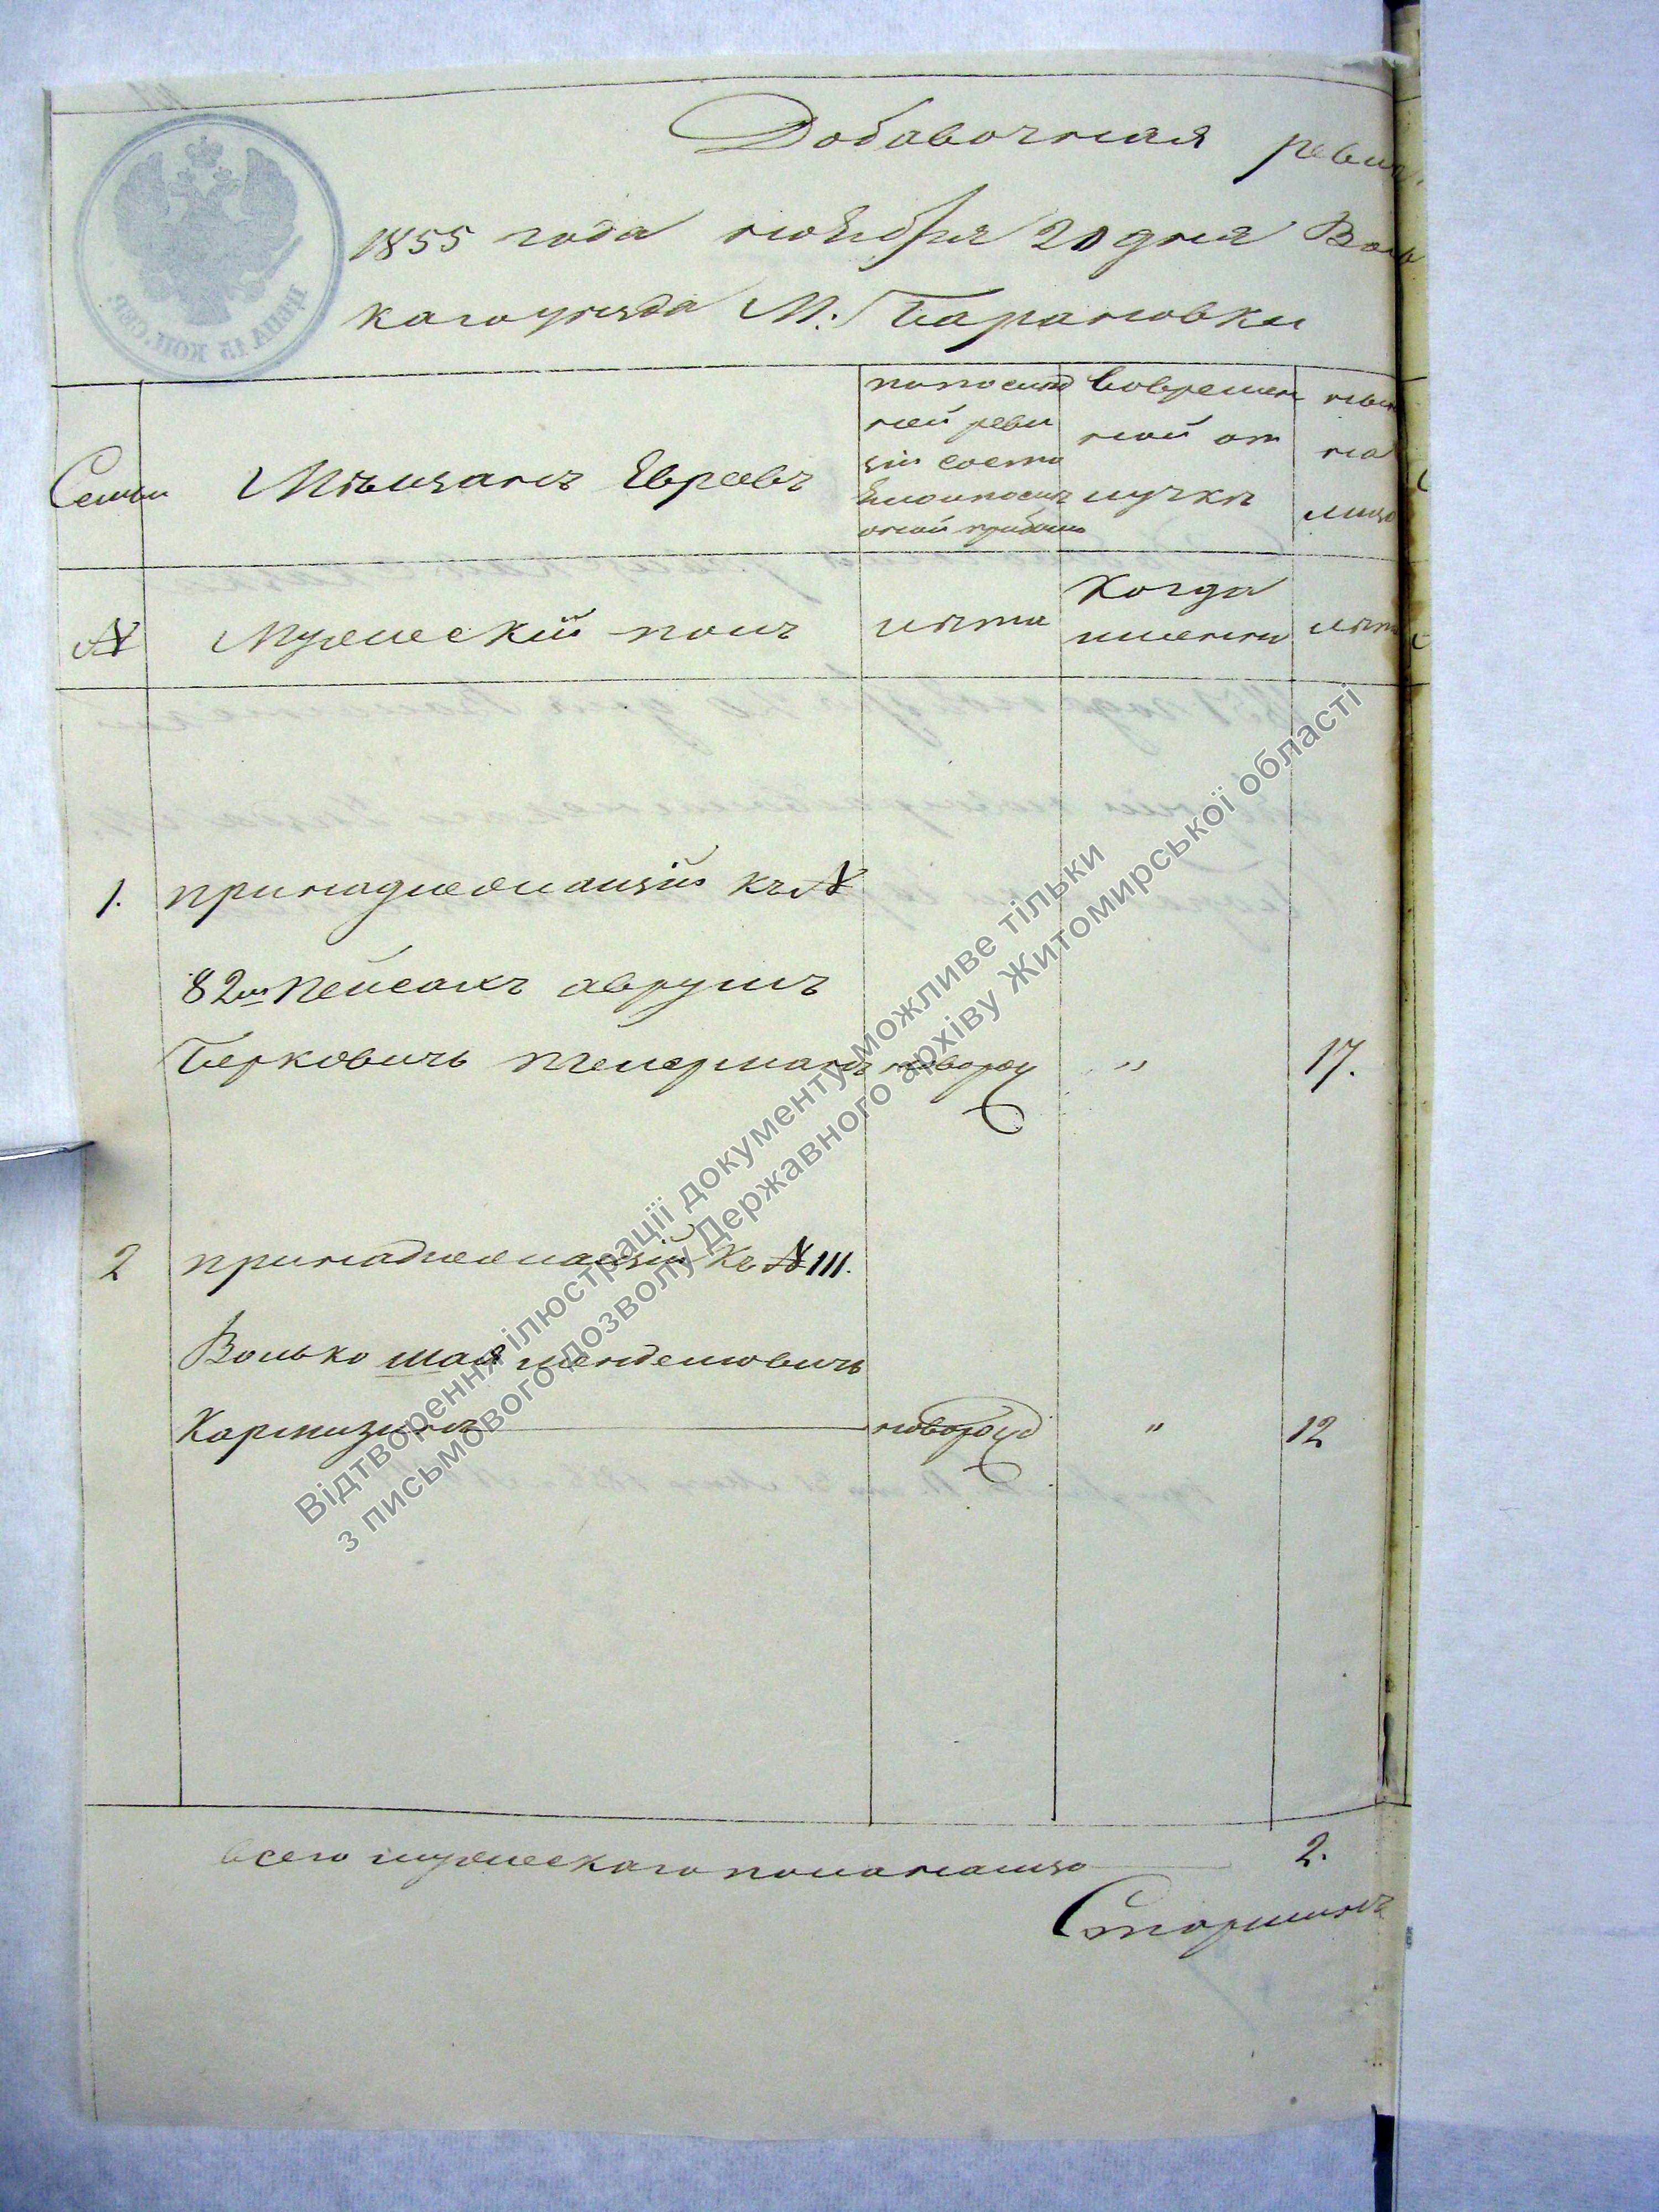 Добавочная реви
1855 года ноября 20 дня Вол
каго уезда М. Барановки
Семьи
Мѣщанъ Евреевъ
по послѣд
ней реви
зіи состо
яло и послѣ
оной прибыло
Вовремен
ной от
лучкѣ
ны
на
лицо
№
Мужескій полъ
лѣта
Когда
именно
лѣта
1. принадлежащій къ №
82му Пейсахъ аврумъ
Берковичъ новорож " 17.
2 принадлежащій къ № 111.
Волько шая менделювичъ
Кармизинъ новорожд " 12
всего мужескаго пола налицо 2.
Старшинъ
ЦѢНА 15 КОП. СЕР.
Відтворення ілюстрації документу можливе тільки
з письмового дозволу Державного архіву Житомирської області